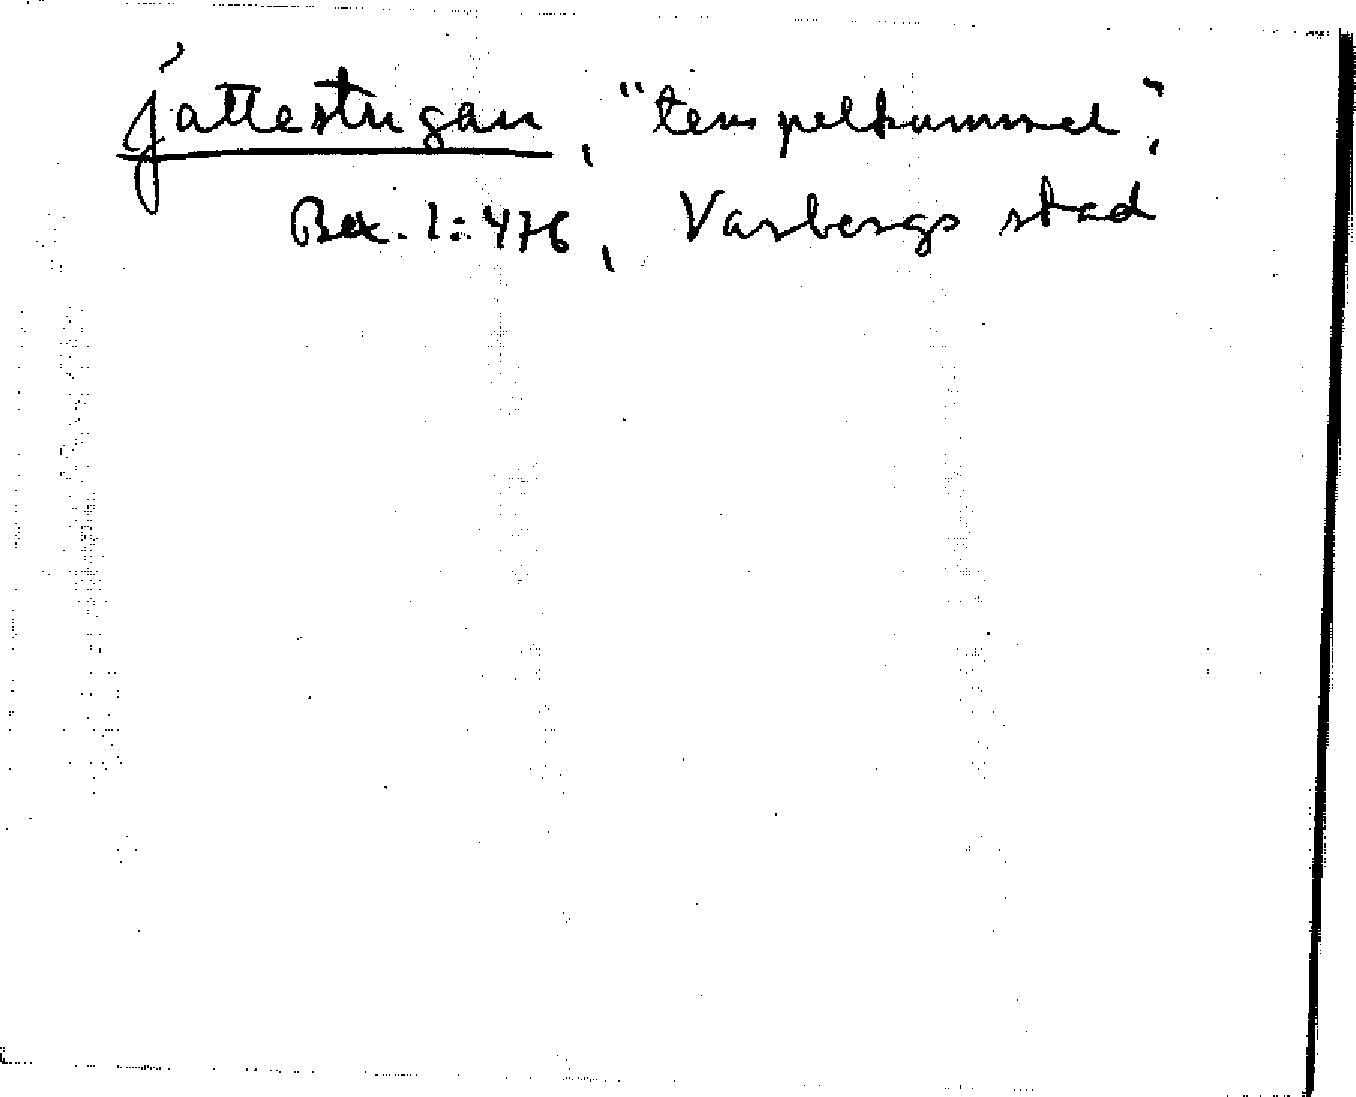 jättestugan, "tempelkummel",
Bex. 1:476, Varbergs stad